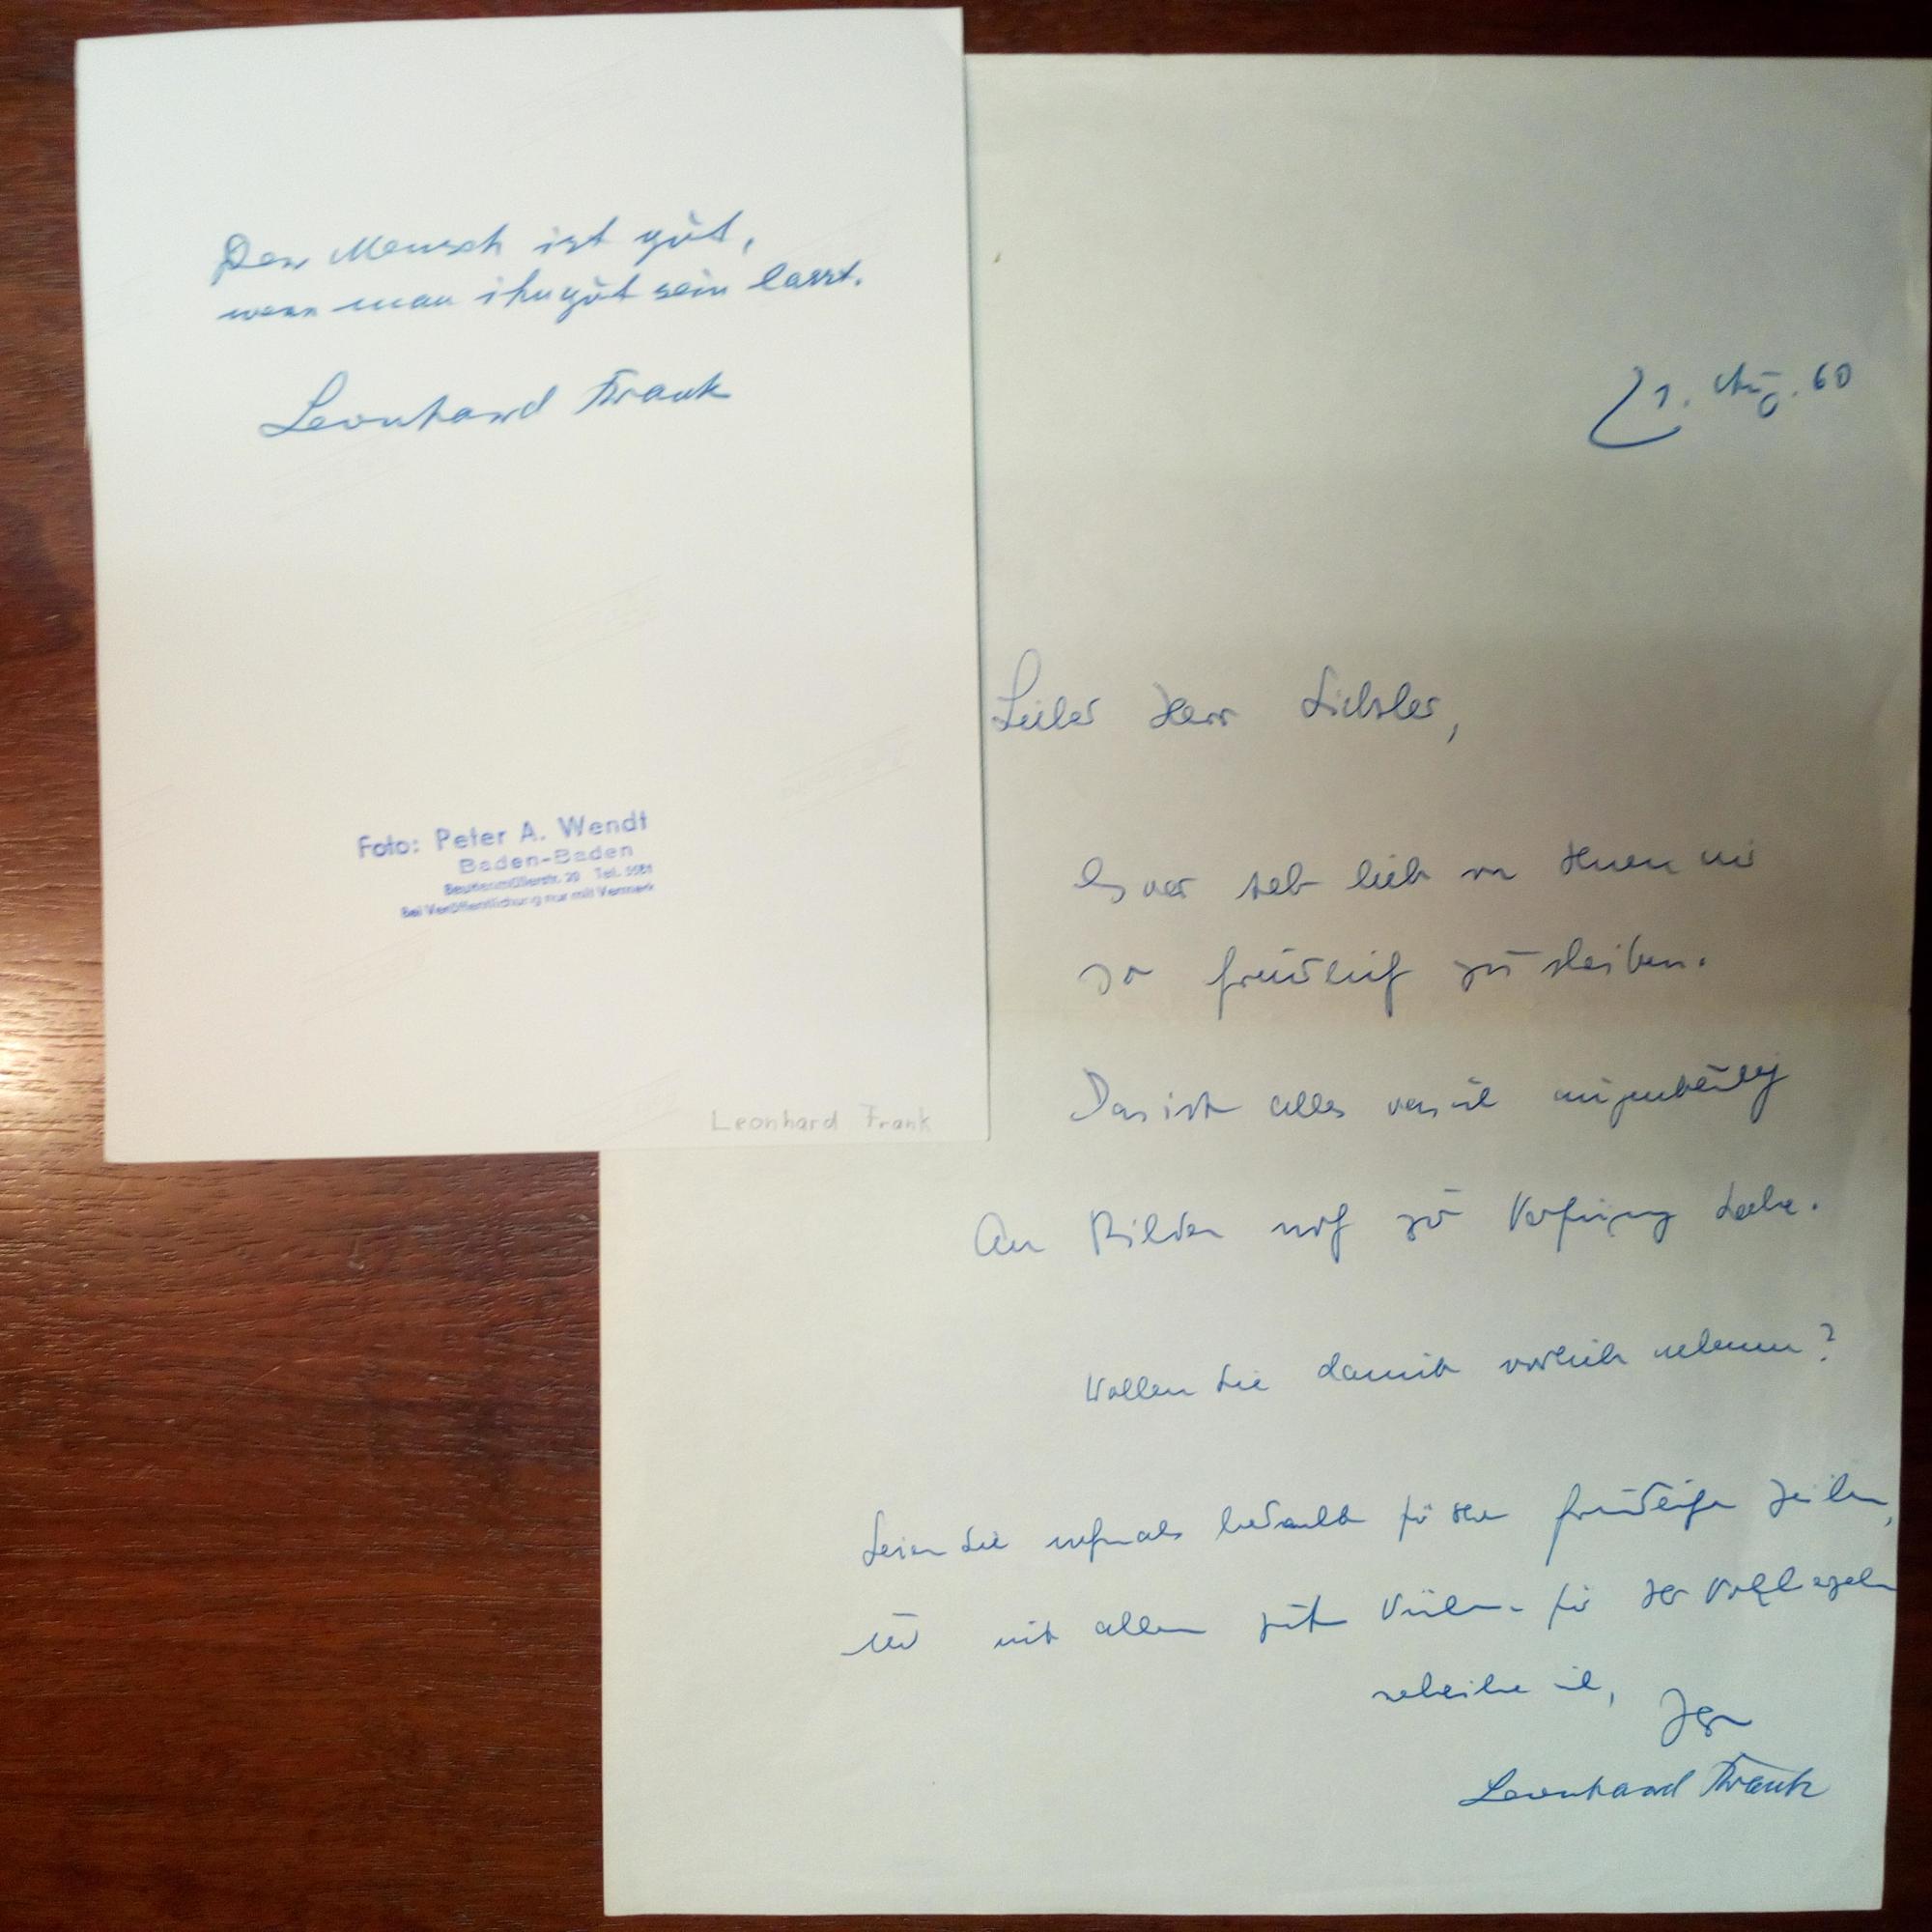 Der Mensch ist gut,
wenn man ihn gut sein lässt.
Leonhard Frank
Foto: Peter A. Wendt
Baden-Baden
Beutenmüllerstr. 20 Tel. 5581
Bei Veröffentlichung nur mit Vermerk
Leonhard Frank
21. Aug. 60
Lieber Herr
Es war sehr lieb von Ihnen mir
so freundlich zu schreiben.
Das ist alles was ich augenblicklich
An Bildern noch zur Verfügung habe.
Wollen Sie damit vorlieb nehmen?
Seien Sie nochmals bedankt für Ihre freundlichen Zeilen,
und mit allen guten Wünschen für Ihr Wohlergehen
verbleibe ich, Ihr
Leonhard Frank